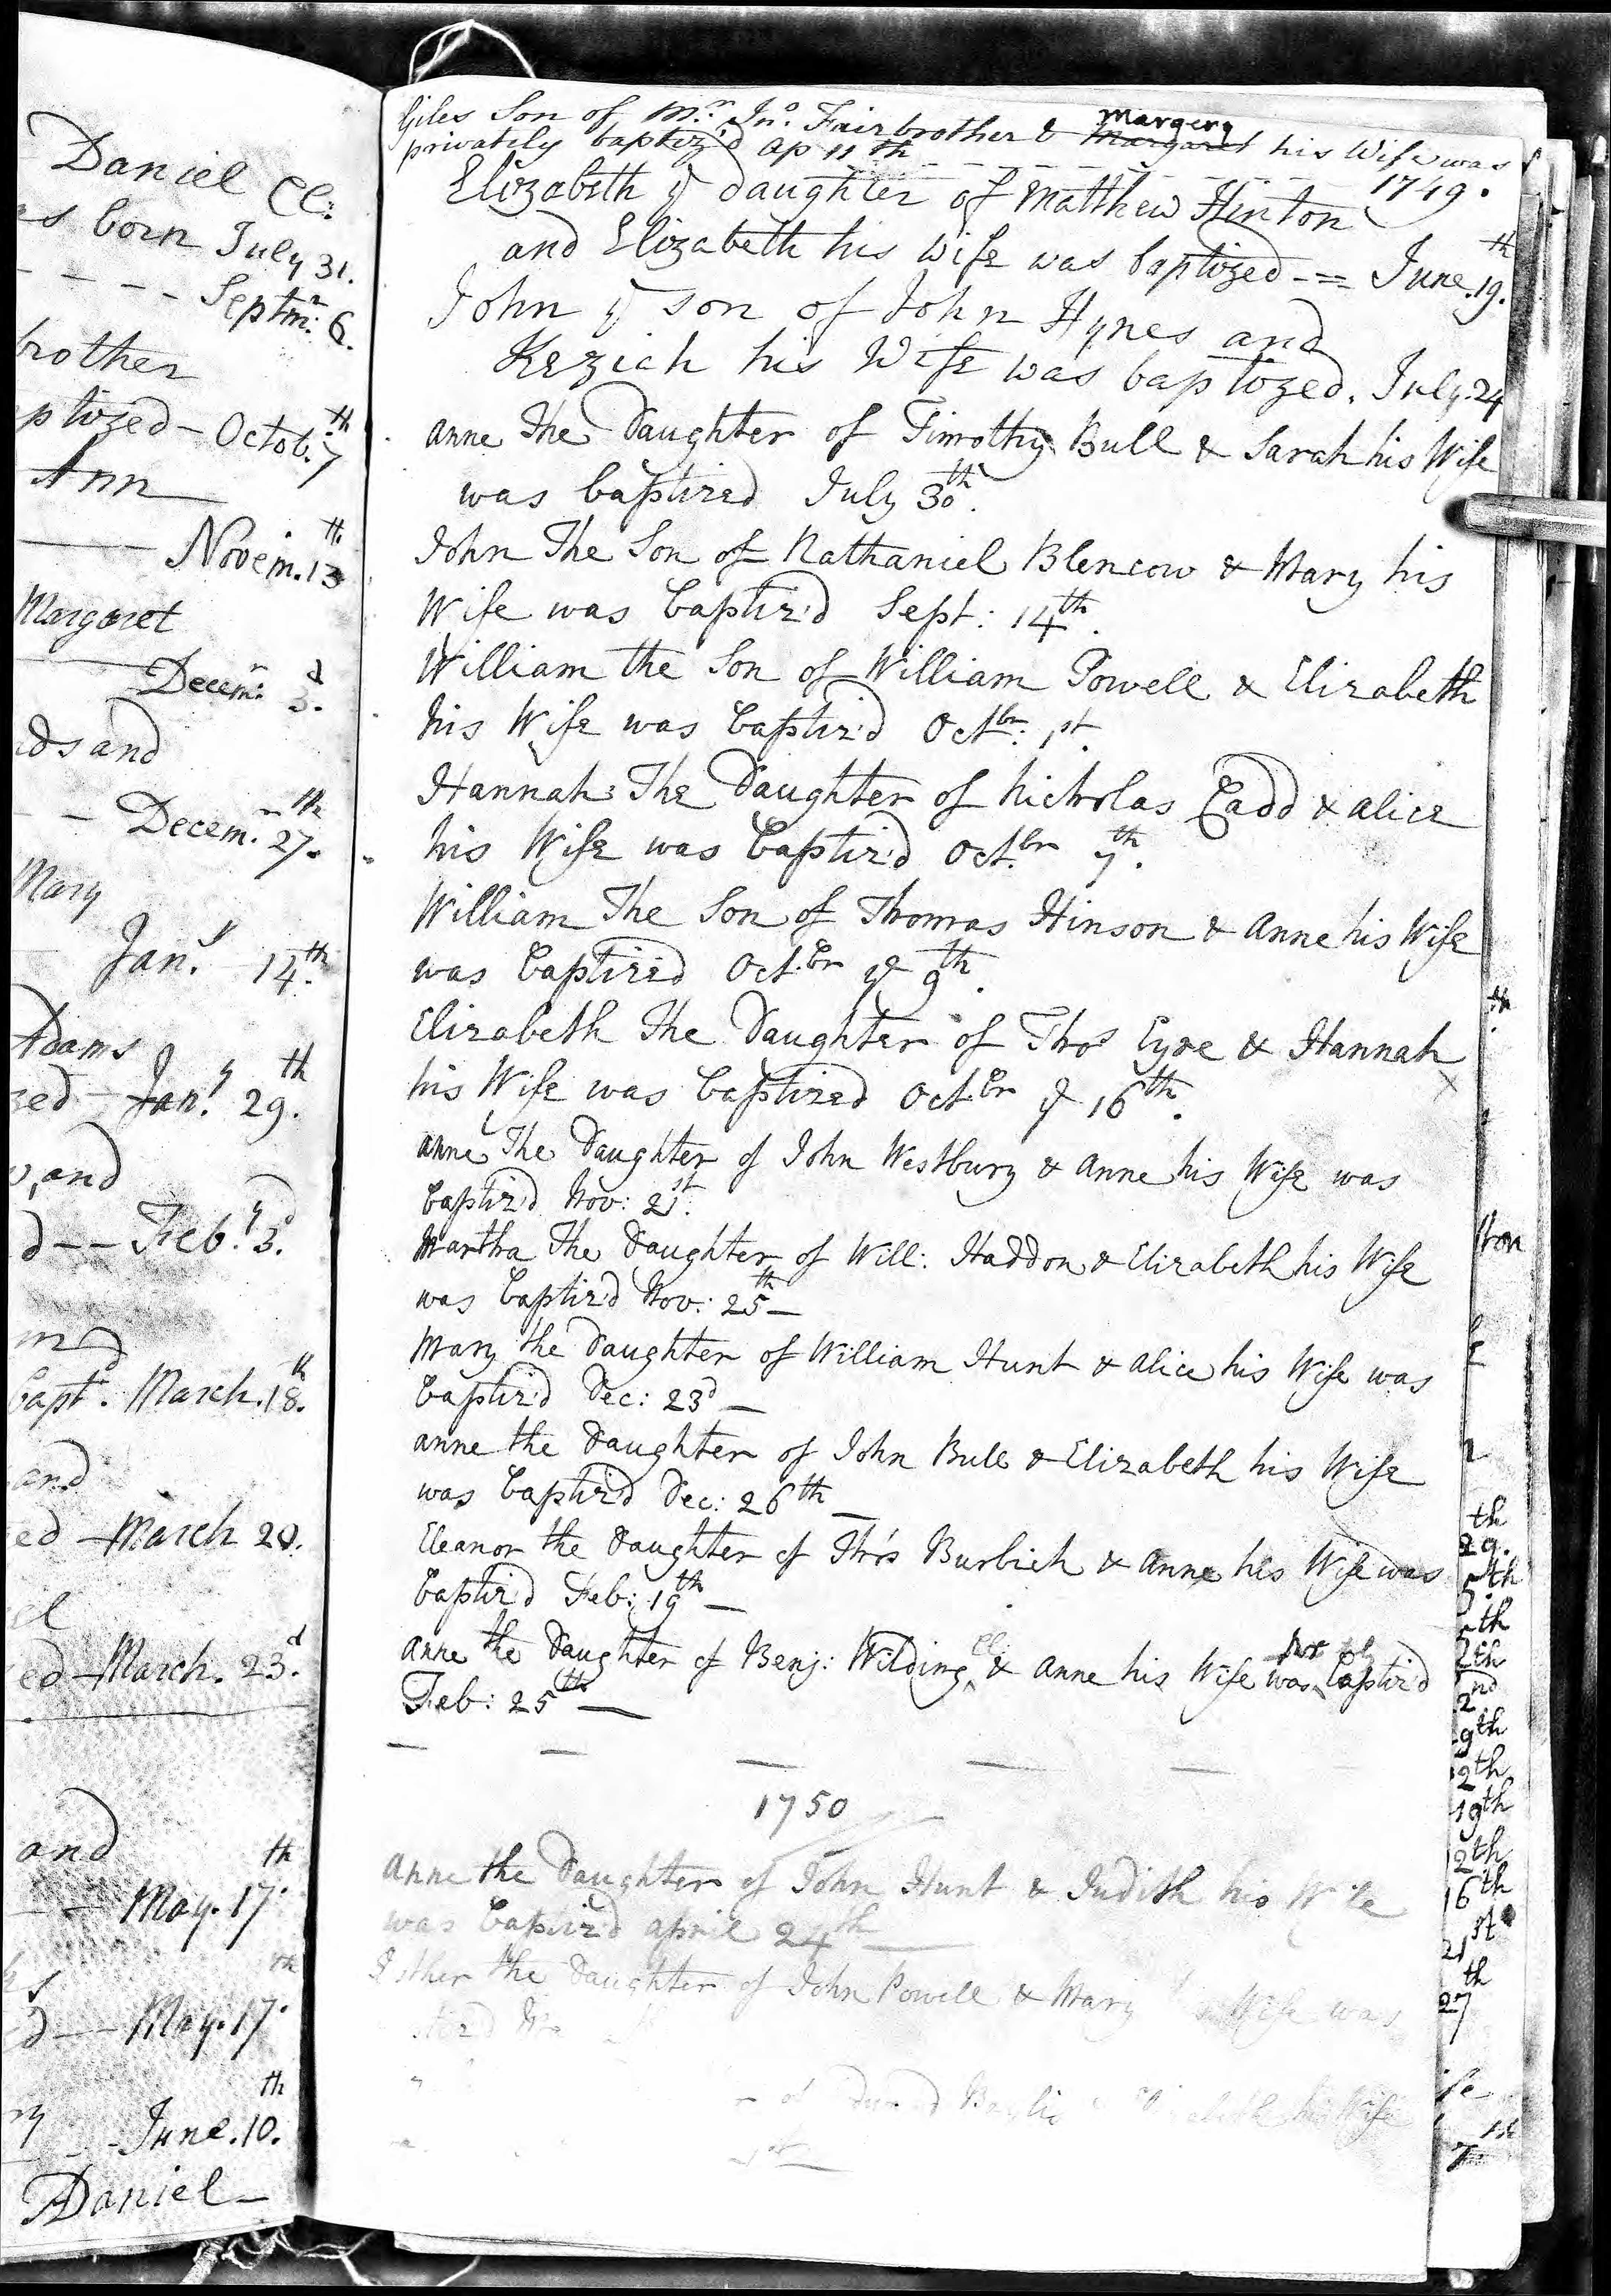 Daniel Cl:
s born July 31.
Septmr: 6.
brother
ptized - Octob. 7th
Ann
Novem. 13th
Margaret
Decemr: 3d.
ds and
Decem. 27th.
Mary
Jany. 14th.
Adams
zed - Jany. 29th.
, and
d -- Feby. 3d.
and
bapt. March. 18th.
and
ed - March 20.
el
ed - March. 23d.
and
May. 17th.
d -- May. 17th.
June. 10th.
Daniel -
Giles Son of Mr. Jno. Fairbrother & Margaret Margery his Wife was
privately baptiz'd Ap 11th
1749.
Elizabeth ye daughter of Matthew Hinton
and Elizabeth his wife was baptized --= June. 19th.
John ye son of John Hynes and
Keziah his Wife was baptized. July. 24
Anne The Daughter of Timothy Bull & Sarah his Wife
was baptized July 30th.
John The Son of Nathaniel Blencow & Mary his
Wife was baptiz'd Sept: 14th.
William the Son of William Powell & Elizabeth
his Wife was baptiz'd Octbr: 1st.
Hannah The Daughter of Nicholas Eadd & Alice
his Wife was baptiz'd Octbr 7th.
William The Son of Thomas Hinson & Anne his Wife
was baptized Octbr ye 9th.
Elizabeth The Daughter of Thos Eyre & Hannah
his Wife was baptized Octbr ye 16th.
Anne The Daughter of John Westbury & Anne his Wife was
baptiz'd Nov: 21st.
Martha The Daughter of Will: Haddon & Elizabeth his Wife
was baptiz'd Nov: 25th -
Mary the Daughter of William Hunt & Alice his Wife was
baptiz'd Dec: 23d -
Anne the Daughter of John Bull & Elizabeth his Wife
was baptiz'd Dec: 26th -
Eleanor the Daughter of Thos Burbich & Anne his Wife was
baptiz'd Feb: 19th -
Anne the Daughter of Benj: Wilding Cl: & Anne his Wife was baptiz'd
Feb: 25th -
1750
Anne the Daughter of John Hunt & Judith his Wife
was baptiz'd April 24th
Esther the Daughter of John Powell & Mary his Wife was
his Wife
th
29.
5th
5th
2th
2nd
9th
2th
19th
12th
16th
21st
27th